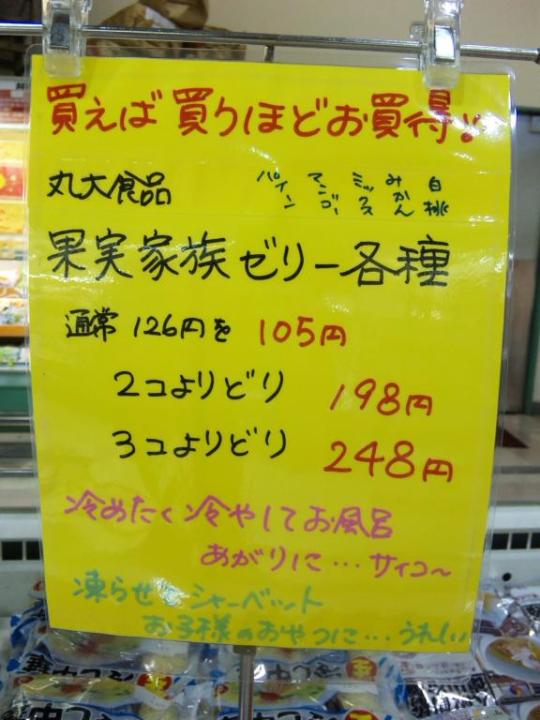 買えば買うほどお買得!!
丸大食品
白桃
みかん
ミックス
マンゴー
パイン
果実家族ゼリー各種
通常126円を 105円
2コよりどり 198円
3コよりどり 248円
冷めたく冷やしてお風呂
あがりに…サイコ〜
凍らせてシャーベット
お子様のおやつに…うれしい